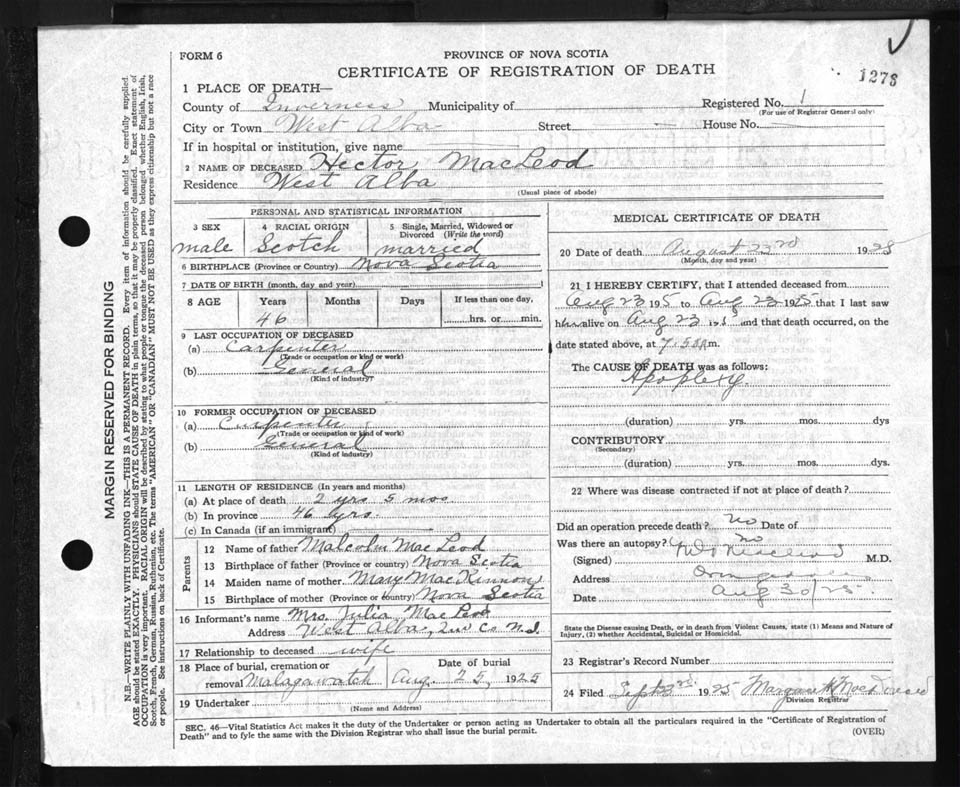 FORM 6
PROVINCE OF NOVA SCOTIA
CERTIFICATE OF REGISTRATION OF DEATH
1273
1 PLACE OF DEATH—
County of Inverness Municipality of Registered No. 1
(For use of Registrar General only)
City or Town West Alba Street — House No. —
If in hospital or institution, give name
2 NAME OF DECEASED Hector MacLeod
Residence West Alba
(Usual place of abode)
PERSONAL AND STATISTICAL INFORMATION
3 SEX 4 RACIAL ORIGIN 5 Single, Married, Widowed or
Divorced (Write the word)
male Scotch married
6 BIRTHPLACE (Province or Country) Nova Scotia
7 DATE OF BIRTH (month, day and year)
8 AGE Years Months Days If less than one day,
46 hrs. or min.
9 LAST OCCUPATION OF DECEASED
(a) Carpenter
(Trade or occupation or kind or work)
(b) General
(Kind of industry)
10 FORMER OCCUPATION OF DECEASED
(a) Carpenter
(Trade or occupation or kind of work)
(b) General
(Kind of industry)
11 LENGTH OF RESIDENCE (In years and months)
(a) At place of death 2 yrs 5 mos
(b) In province 46 yrs.
(c) In Canada (if an immigrant)
Parents
12 Name of father Malcolm MacLeod
13 Birthplace of father (Province or country) Nova Scotia
14 Maiden name of mother Mary MacKinnon
15 Birthplace of mother (Province or country) Nova Scotia
16 Informant's name Mrs. Julia MacLeod
Address West Alba, Inv Co N.S.
17 Relationship to deceased wife
18 Place of burial, cremation or Date of burial
removal Malagawatch Aug. 25, 1925
19 Undertaker
(Name and Address)
MEDICAL CERTIFICATE OF DEATH
20 Date of death August 23rd 1925
(Month, day and year)
21 I HEREBY CERTIFY, that I attended deceased from
Aug 23 195 to Aug 23 1925 that I last saw
him alive on Aug 23 and that death occurred, on the
date stated above, at m.
The CAUSE OF DEATH was as follows:
Apoplexy
(duration) yrs. mos. dys
CONTRIBUTORY
(Secondary)
(duration) yrs. mos. dys.
22 Where was disease contracted if not at place of death?
Did an operation precede death? no Date of
Was there an autopsy? no
(Signed) MacLeod M.D.
Address
Date Aug 30/25.
State the Disease causing Death, or in death from Violent Causes, state (1) Means and Nature of
Injury, (2) whether Accidental, Suicidal or Homicidal.
23 Registrar's Record Number
24 Filed Sept 3rd. 1925 Margaret
Division Registrar
SEC. 46—Vital Statistics Act makes it the duty of the Undertaker or person acting as Undertaker to obtain all the particulars required in the "Certificate of Registration of
Death" and to fyle the same with the Division Registrar who shall issue the burial permit. (OVER)
MARGIN RESERVED FOR BINDING
N.B.—WRITE PLAINLY WITH UNFADING INK—THIS IS A PERMANENT RECORD. Every item of information should be carefully supplied.
AGE should be stated EXACTLY. PHYSICIANS should STATE CAUSE OF DEATH in plain terms, so that it may be properly classified. Exact statement of
OCCUPATION is very important. RACIAL ORIGIN will be described by stating to what people or tongue the deceased person belonged whether English, Irish,
Scotch, French, German, Russian, Ruthenian, etc. The terms "AMERICAN" OR "CANADIAN" MUST NOT BE USED as they express citizenship but not a race
or people. See instructions on back of Certificate.